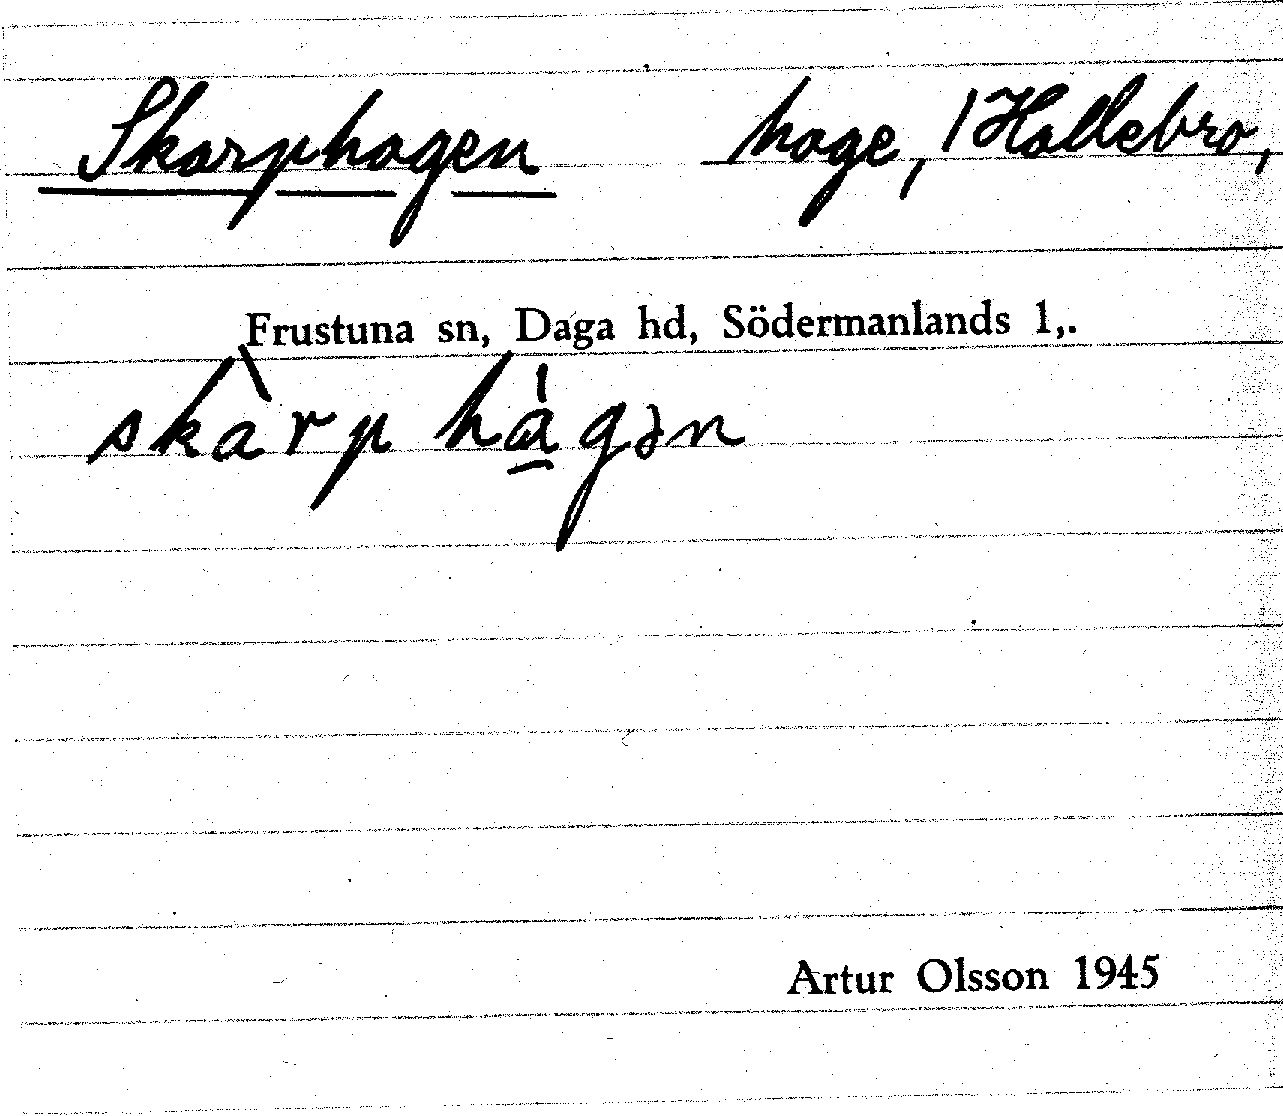 Skarphagen hage, 1 Hallebro,
Frustuna sn, Daga hd, Södermanlands l,.
skàrp há̱gən
Artur Olsson 1945